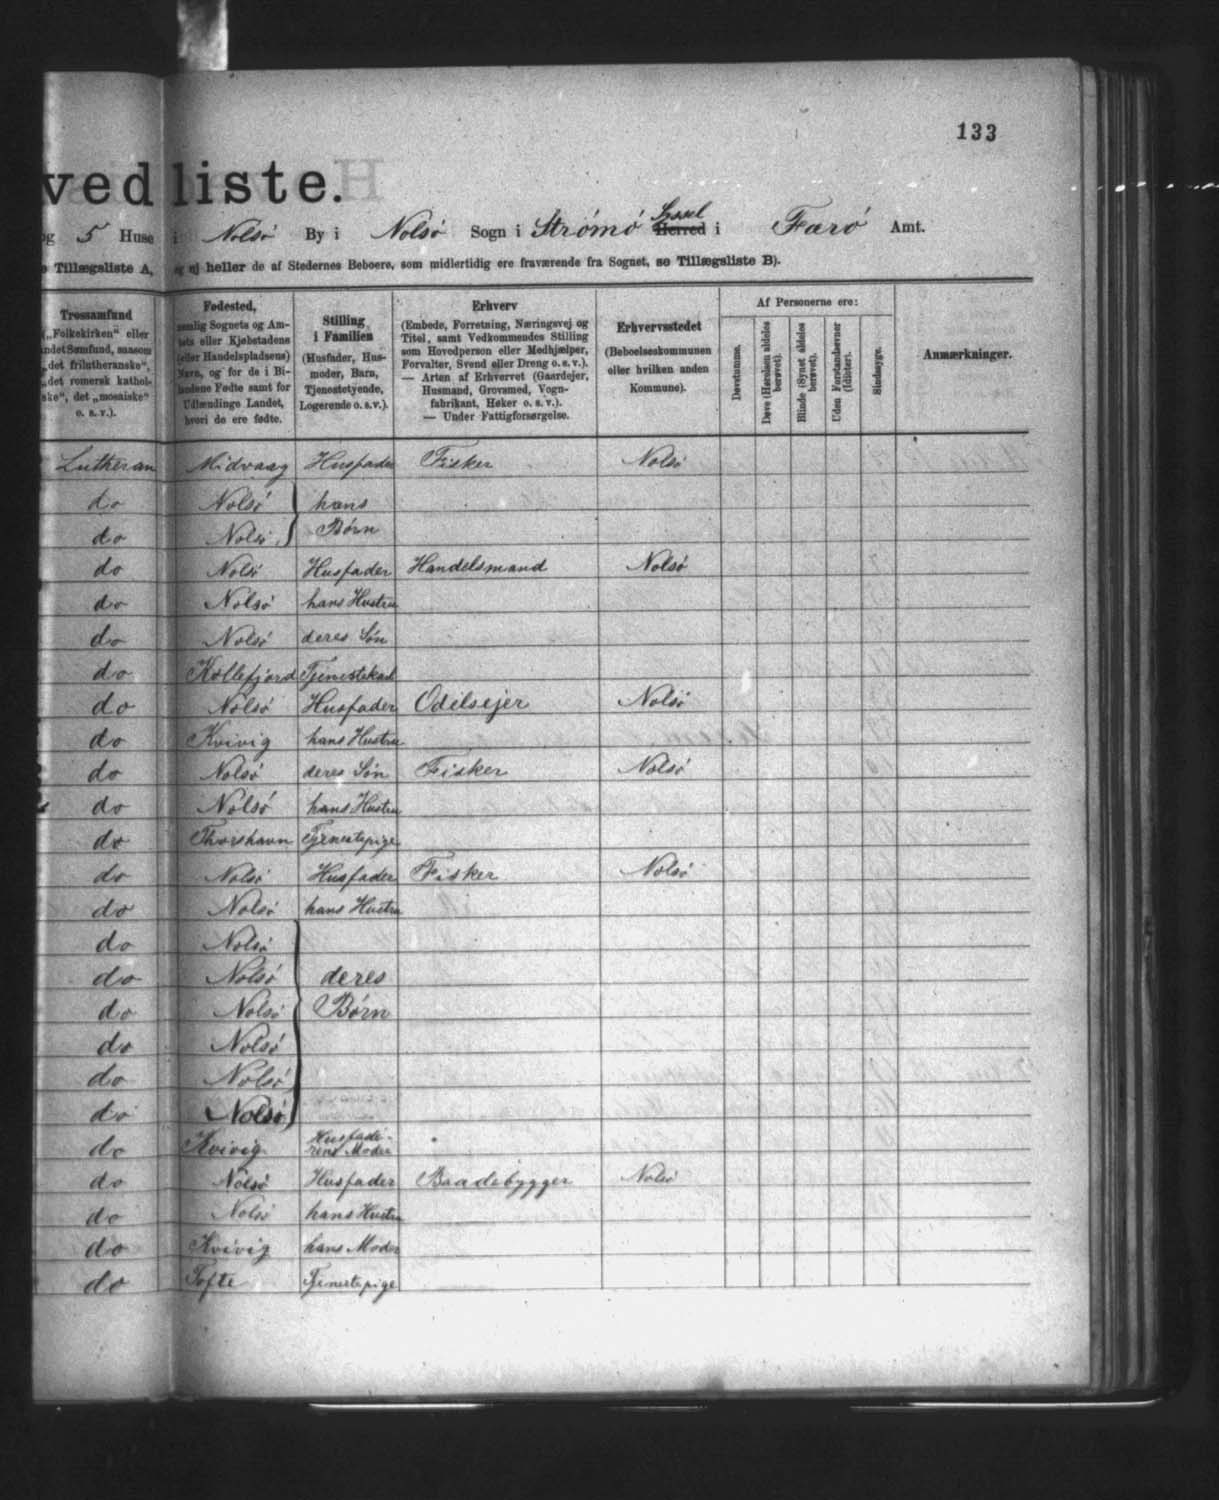 133
vedliste.
og 5 Huse i Nolsó By i Nolsó Sogn i Strómó Herred Syssel i Færó Amt.
e Tillægsliste A, og ej heller de af Stedernes Beboere, som midlertidig ere fraværende fra Sognet, se Tillægsliste B).
Trossamfund
(„Folkekirken“ eller
andet Samfund, saasom
„det frilutheranske“,
„det romersk kathol-
ske“, det „mosaiske“
o. s. v.).
Fødested,
nemlig Sognets og Am-
tets eller Kjøbstadens
(eller Handelspladsens)
Navn, og for de i Bi-
landene Fødte samt for
Udlændinge Landet,
hvori de ere fødte.
Stilling
i Familien
(Husfader, Hus-
moder, Barn,
Tjenestetyende,
Logerende o. s. v.).
Erhverv
(Embede, Forretning, Næringsvej og
Titel, samt Vedkommendes Stilling
som Hovedperson eller Medhjælper,
Forvalter, Svend eller Dreng o. s. v.).
— Arten af Erhvervet (Gaardejer,
Husmand, Grovsmed, Vogn-
fabrikant, Høker o. s. v.).
— Under Fattigforsørgelse.
Erhvervsstedet
(Beboelseskommunen
eller hvilken anden
Kommune).
Af Personerne ere:
Døvstumme.
Døve (Hørelsen aldeles
berøvet).
Blinde (Synet aldeles
berøvet).
Uden Forstandsevner
(Idioter).
Sindssyge.
Anmærkninger.
Lutheran Midvaag Husfader Fisker Nolsó
do Nolsó hans
do Nolsó Børn
do Nolsó Husfader Handelsmand Nolsó
do Nolsó hans Hustru
do Nolsó deres Són
do Kollefjord Tjenestekarl
do Nolsó Husfader Odelsejer Nolsó
do Kvivig hans Hustru
do Nolsó deres Són Fisker Nolsó
do Nolsó hans Hustru
do Thorshavn Tjenestepige
do Nolsó Husfader Fisker Nolsó
do Nolsó hans Hustru
do Nolsó
do Nolsó deres
do Nolsó Børn
do Nolsó
do Nolsó
do Nolsó
do Kvivig Husfade-
rens Moder
do Nolsó Husfader Baadebygger Nolsó
do Nolsó hans Hustru
do Kvivig hans Moder
do Tofte Tjenestepige